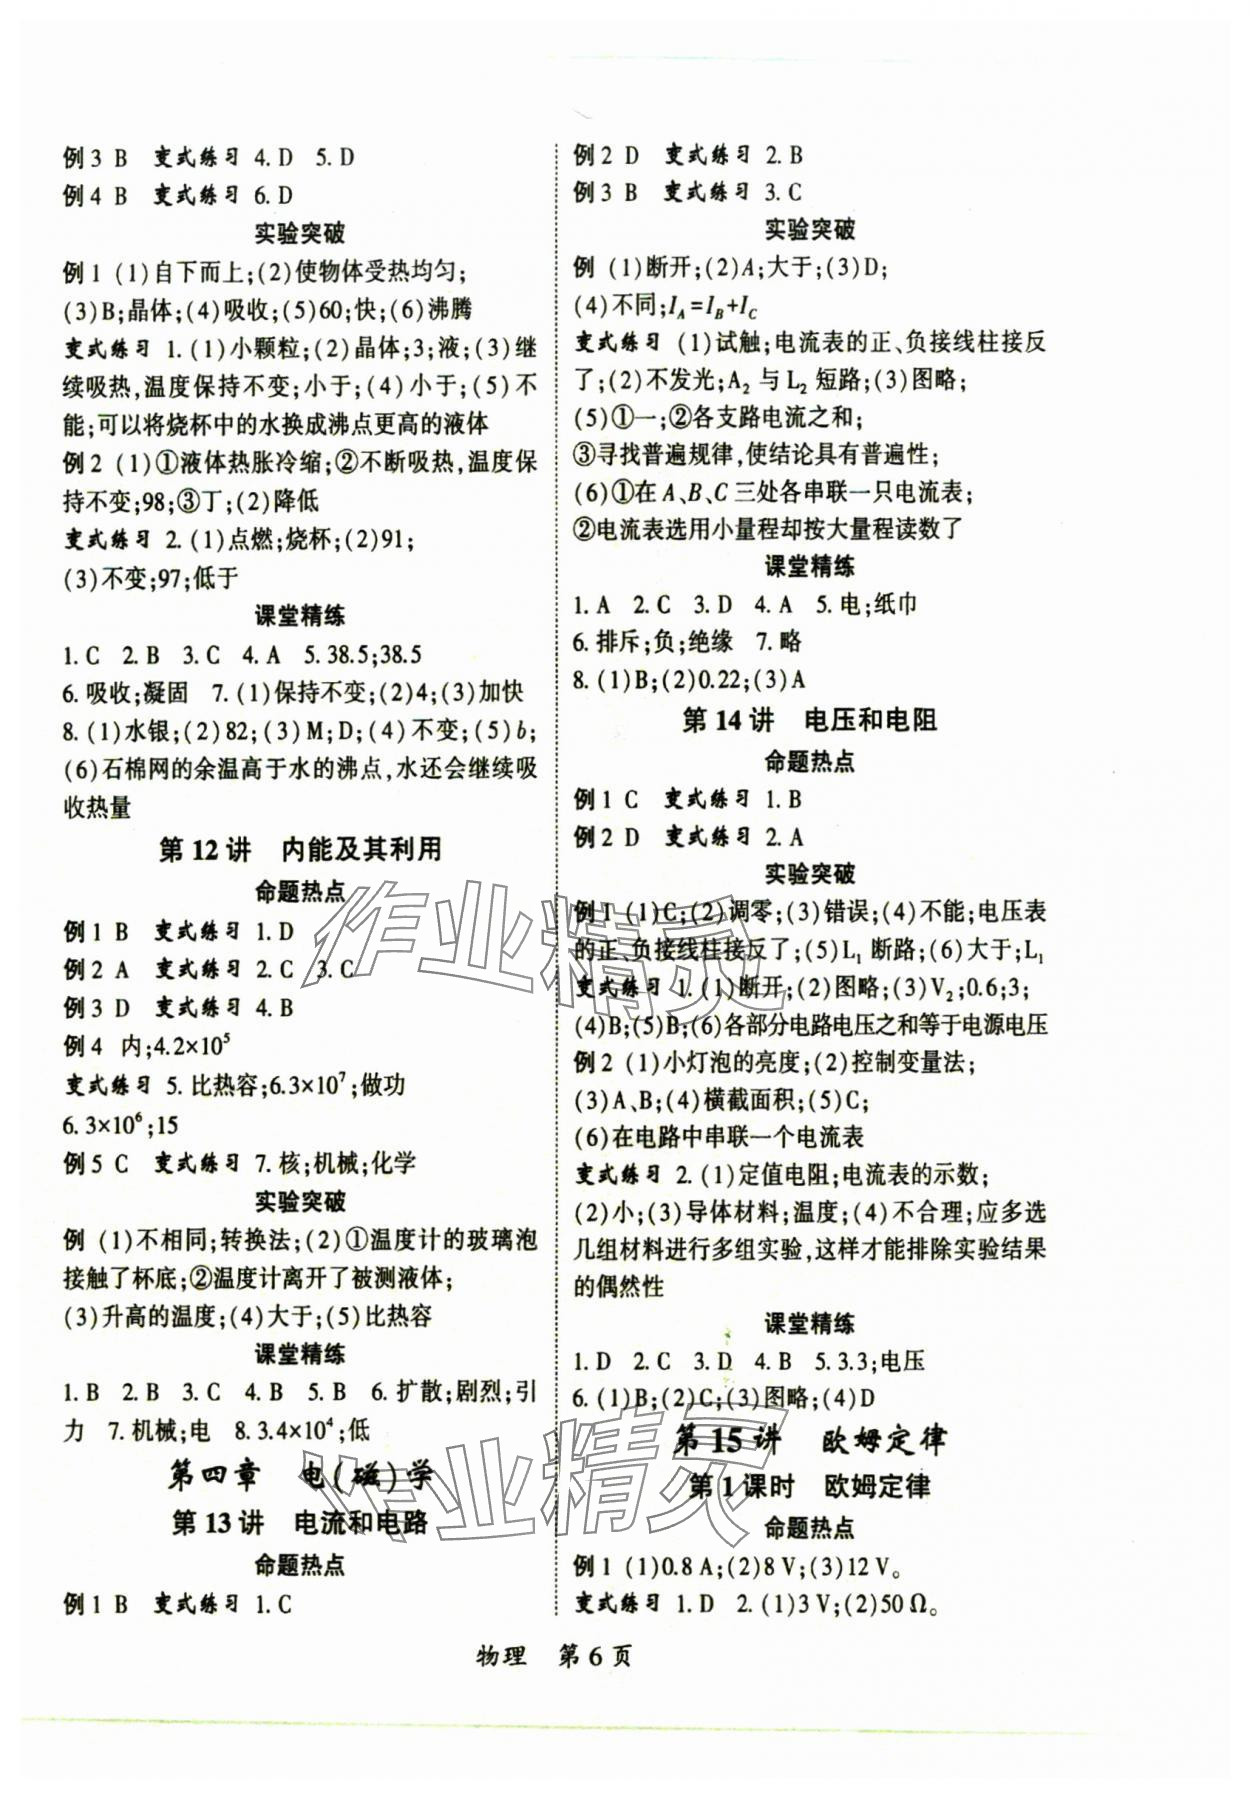 例3 B 变式练习 4. D 5. D
例4 B 变式练习 6. D
实验突破
例1 (1)自下而上;(2)使物体受热均匀;
(3)B;晶体;(4)吸收;(5)60;快;(6)沸腾
变式练习 1. (1)小颗粒;(2)晶体;3;液;(3)继
续吸热,温度保持不变;小于;(4)小于;(5)不
能;可以将烧杯中的水换成沸点更高的液体
例2 (1)①液体热胀冷缩;②不断吸热,温度保
持不变;98;③丁;(2)降低
变式练习 2. (1)点燃;烧杯;(2)91;
(3)不变;97;低于
课堂精练
1. C 2. B 3. C 4. A 5. 38.5;38.5
6. 吸收;凝固 7. (1)保持不变;(2)4;(3)加快
8. (1)水银;(2)82;(3)M;D;(4)不变;(5)b;
(6)石棉网的余温高于水的沸点,水还会继续吸
收热量
第12讲 内能及其利用
命题热点
例1 B 变式练习 1. D
例2 A 变式练习 2. C 3. C
例3 D 变式练习 4. B
例4 内;4.2×10⁵
变式练习 5. 比热容;6.3×10⁷;做功
6. 3×10⁶;15
例5 C 变式练习 7. 核;机械;化学
实验突破
例 (1)不相同;转换法;(2)①温度计的玻璃泡
接触了杯底;②温度计离开了被测液体;
(3)升高的温度;(4)大于;(5)比热容
课堂精练
1. B 2. B 3. C 4. B 5. B 6. 扩散;剧烈;引
力 7. 机械;电 8. 3.4×10⁴;低
第四章 电(磁)学
第13讲 电流和电路
命题热点
例1 B 变式练习 1. C
例2 D 变式练习 2. B
例3 B 变式练习 3. C
实验突破
例 (1)断开;(2)A;大于;(3)D;
(4)不同;I_A=I_B+I_C
变式练习 (1)试触;电流表的正、负接线柱接反
了;(2)不发光;A₂ 与 L₂ 短路;(3)图略;
(5)①一;②各支路电流之和;
③寻找普遍规律,使结论具有普遍性;
(6)①在 A、B、C 三处各串联一只电流表;
②电流表选用小量程却按大量程读数了
课堂精练
1. A 2. C 3. D 4. A 5. 电;纸巾
6. 排斥;负;绝缘 7. 略
8. (1)B;(2)0.22;(3)A
第14讲 电压和电阻
命题热点
例1 C 变式练习 1. B
例2 D 变式练习 2. A
实验突破
例1 (1)C;(2)调零;(3)错误;(4)不能;电压表
的正、负接线柱接反了;(5)L₁ 断路;(6)大于;L₁
变式练习 1. (1)断开;(2)图略;(3)V₂;0.6;3;
(4)B;(5)B;(6)各部分电路电压之和等于电源电压
例2 (1)小灯泡的亮度;(2)控制变量法;
(3)A、B;(4)横截面积;(5)C;
(6)在电路中串联一个电流表
变式练习 2. (1)定值电阻;电流表的示数;
(2)小;(3)导体材料;温度;(4)不合理;应多选
几组材料进行多组实验,这样才能排除实验结果
的偶然性
课堂精练
1. D 2. C 3. D 4. B 5. 3.3;电压
6. (1)B;(2)C;(3)图略;(4)D
第15讲 欧姆定律
第1课时 欧姆定律
命题热点
例1 (1)0.8 A;(2)8 V;(3)12 V。
变式练习 1. D 2. (1)3 V;(2)50 Ω。
物理 第6页
作业精灵
作业精灵